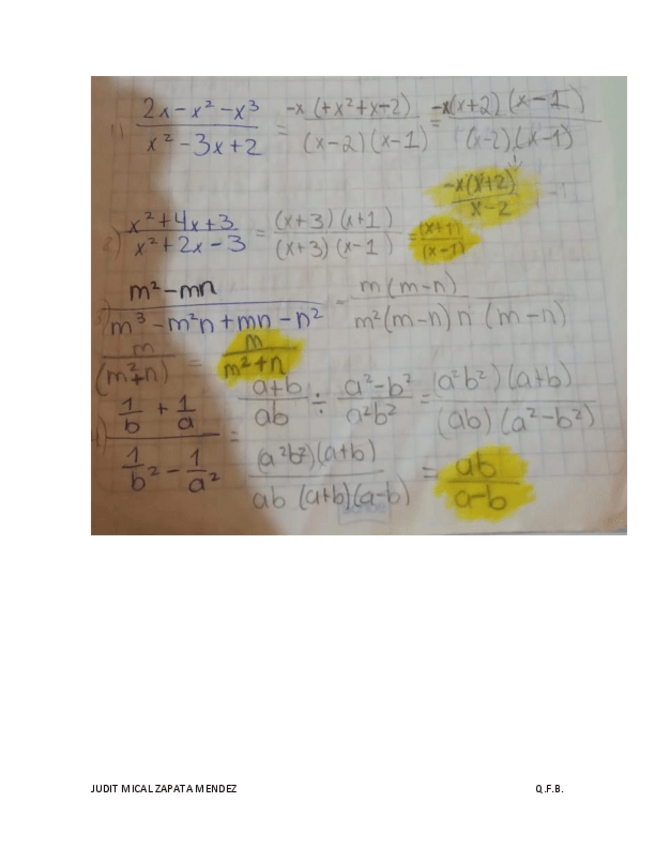 1) 2x-x²-x³ / x²-3x+2 = -x(+x²+x-2) / (x-2)(x-1) = -x(x+2)(x-1) / (x-2)(x-1)
-x(x+2) / x-2
2) x²+4x+3 / x²+2x-3 = (x+3)(x+1) / (x+3)(x-1) = (x+1) / (x-1)
3) m²-mn / m³-m²n+mn-n² = m(m-n) / m²(m-n) n (m-n)
m / (m²+n) = m / m²+n
4) 1/b + 1/a / 1/b² - 1/a² = a+b / ab ÷ a²-b² / a²b² = (a²b²)(a+b) / (ab)(a²-b²)
(a²b²)(a+b) / ab (a+b)(a-b) = ab / a-b
JUDIT MICAL ZAPATA MENDEZ Q.F.B.